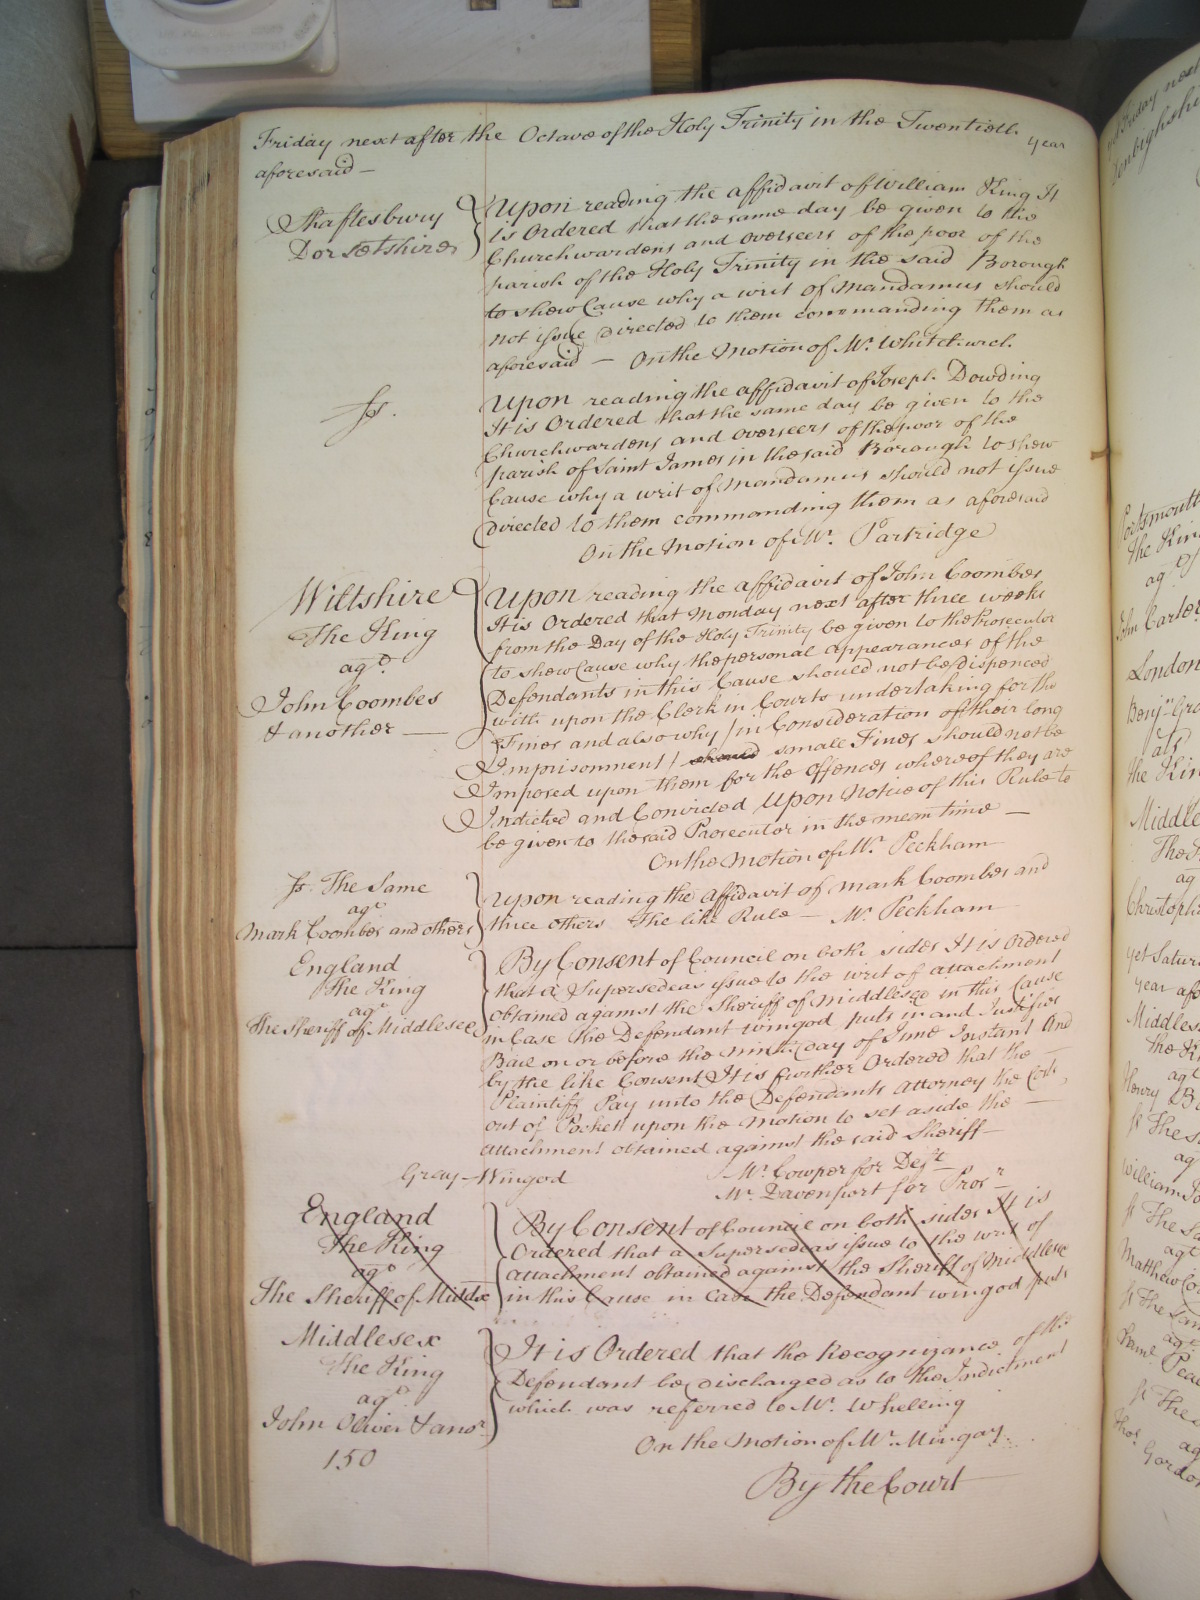 Friday next after the Octave of the Holy Trinity in the Twentieth year
aforesaid —
Shaftesbury
Dorsetshire
Upon reading the affidavit of William King It
is Ordered that the same day be given to the
Churchwardens and overseers of the poor of the
parish of the Holy Trinity in the said Borough
to shew Cause why a writ of Mandamus should
not issue Directed to them commanding them as
aforesaid — On the Motion of Mr. Whitchurch
Ss.
Upon reading the affidavit of Joseph Dowding
It is Ordered that the same day be given to the
Churchwardens and overseers of the poor of the
parish of Saint James in the said Borough to shew
Cause why a writ of Mandamus should not issue
Directed to them commanding them as aforesaid
On the Motion of Mr. Partridge
Wiltshire
The King
agt.
John Coombes
& another —
Upon reading the affidavit of John Coombes
It is Ordered that Monday next after three weeks
from the Day of the Holy Trinity be given to the Prosecutor
to shew Cause why the personal appearances of the
Defendants in this Cause should not be dispenced
with upon the Clerk in Courts undertaking for the
Fines and also why / in Consideration of their long
Imprisonment / small Fines should not be
Imposed upon them for the offences whereof they are
Indicted and Convicted Upon Notice of this Rule to
be given to the said Prosecutor in the mean time —
On the Motion of Mr. Peckham
Ss. The Same
agt
Mark Coombes and others
Upon reading the affidavit of Mark Coombes and
three others The like Rule — Mr. Peckham
England
The King
agt
The Sheriff of Middlesex
By Consent of Council on both sides It is Ordered
that a Supersedeas issue to the writ of attachment
obtained against the Sheriff of Middlesex in this Cause
in Case the Defendant wingod puts in and Justifies
Bail on or before the ninth day of June Instant And
by the like Consent It is further Ordered that the —
Plaintiff Pay unto the Defendants attorney the Costs
out of Pocket upon the Motion to set aside the —
attachment obtained against the said Sheriff —
Gray — Wingod
Mr. Cowper for Deft
Mr. Davenport for Prosr
England
The King
agt
The Sheriff of Middx
By Consent of Council on both sides It is
Ordered that a Supersedeas issue to the writ of
attachment obtained against the Sheriff of Middlesex
in this Cause in Case the Defendant wingod puts
Middlesex
The King
agt
John Oliver & anor
150
It is Ordered that the Recognizance of the
Defendant be discharged as to the Indictment
which was referred to Mr. Wheling
On the Motion of Mr. Mingay
By the Court
Portsmouth
The King
London
Middlesex